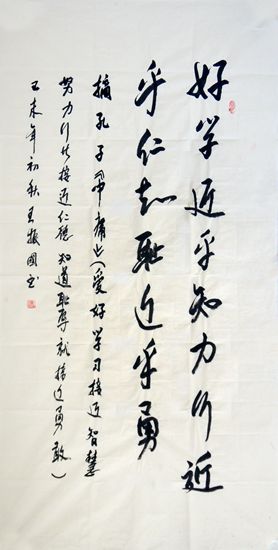 好学近乎知力行近
乎仁知耻近乎勇
摘孔子《中庸》(爱好学习接近智慧
努力行接近仁德 知道耻辱就接近勇敢)
乙未年初秋王振国书